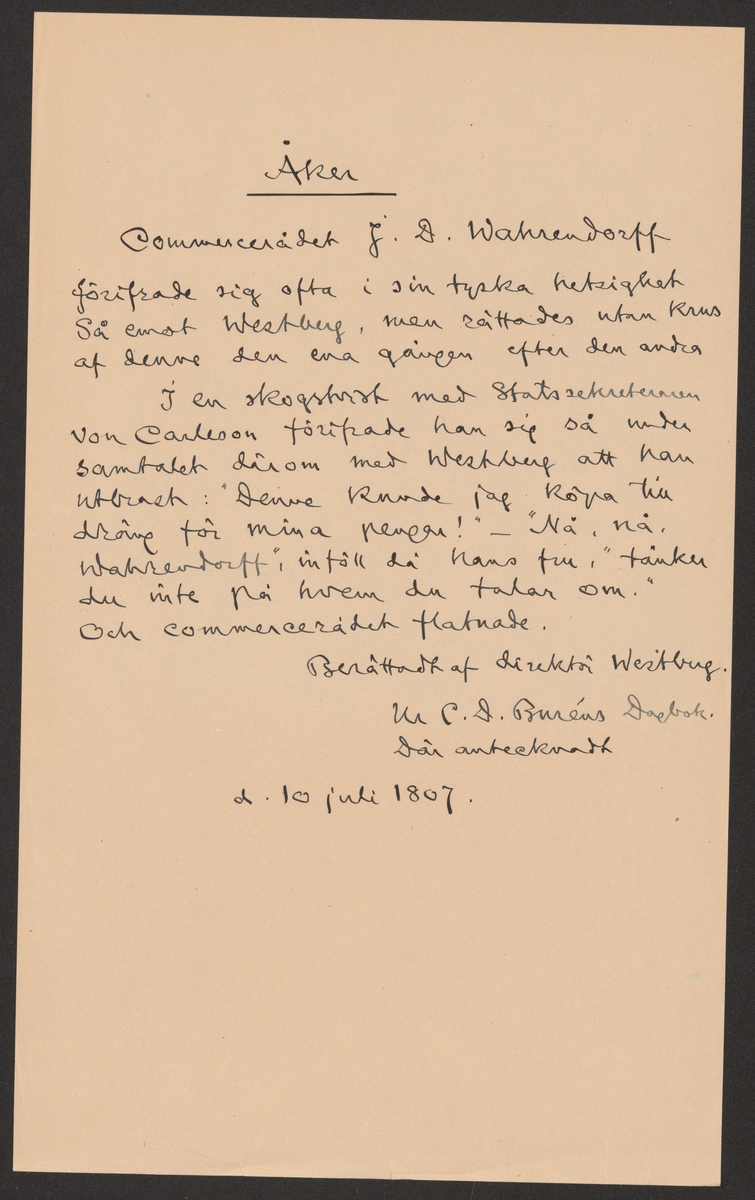 Åker
Commercerådet J. D. Wahrendorff
förifrade sig ofta i sin tyska hetsighet
Så emot Westberg, men rättades utan krus
af denne den ena gången efter den andra
I en skogstvist med Statssekreteraren
von Carleson förifrade han sig så under
samtalet därom med Westberg att han
utbrast: "Denne kunde jag köpa till
dräng för mina pengar!" – "Nå, nå,
Wahrendorff", inföll då hans fru, "tänker
du inte på hvem du talar om."
Och commercerådet flatnade.
Berättadt af direktör Westberg.
Ur C. D. Buréns Dagbok.
Där antecknadt
d. 10 juli 1807.